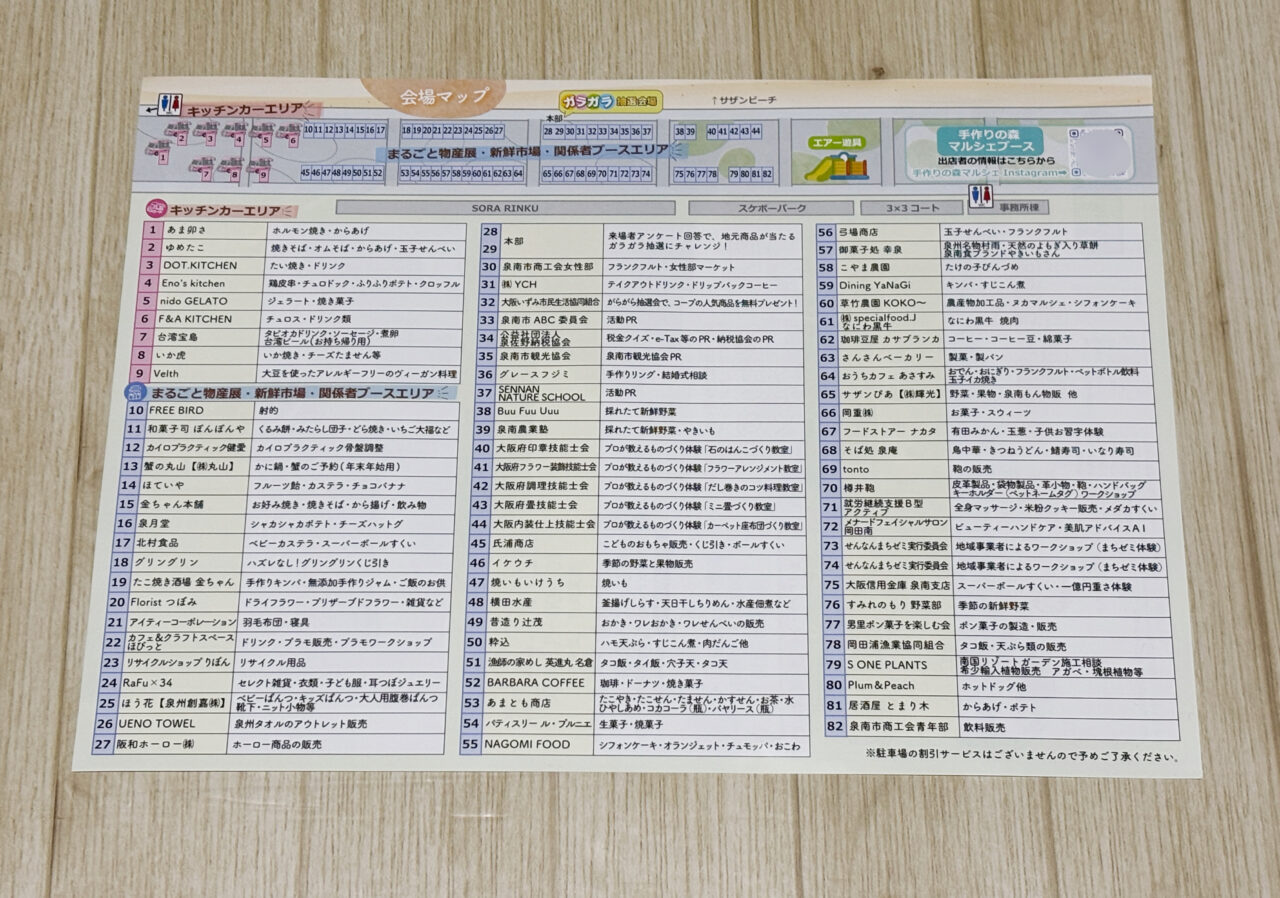 会場マップ
ガラガラ 抽選会場
↑サザンビーチ
キッチンカーエリア
本部
1 2 3 4 5 6 7 8 9
10 11 12 13 14 15 16 17
18 19 20 21 22 23 24 25 26 27
28 29 30 31 32 33 34 35 36 37
38 39
40 41 42 43 44
まるごと物産展・新鮮市場・関係者ブースエリア
45 46 47 48 49 50 51 52
53 54 55 56 57 58 59 60 61 62 63 64
65 66 67 68 69 70 71 72 73 74
75 76 77 78
79 80 81 82
エアー遊具
手作りの森
マルシェブース
出店者の情報はこちらから
手作りの森マルシェ Instagram➡
SORA RINKU
スケボーパーク
3×3 コート
事務所棟
キッチンカーエリア
1 あま卯さ ホルモン焼き・からあげ
2 ゆめたこ 焼きそば・オムそば・からあげ・玉子せんべい
3 DOT.KITCHEN たい焼き・ドリンク
4 Eno's kitchen 鶏皮串・チュロドック・ふりふりポテト・クロッフル
5 nido GELATO ジェラート・焼き菓子
6 F&A KITCHEN チュロス・ドリンク類
7 台湾宝島 タピオカドリンク・ソーセージ・煮卵
台湾ビール(お持ち帰り用)
8 いか虎 いか焼き・チーズたません等
9 Velth 大豆を使ったアレルギーフリーのヴィーガン料理
まるごと物産展・新鮮市場・関係者ブースエリア
10 FREE BIRD 射的
11 和菓子司 ぽんぽんや くるみ餅・みたらし団子・どら焼き・いちご大福など
12 カイロプラクティック健愛 カイロプラクティック骨盤調整
13 蟹の丸山【㈱丸山】 かに鍋・蟹のご予約(年末年始用)
14 ほていや フルーツ飴・カステラ・チョコバナナ
15 金ちゃん本舗 お好み焼き・焼きそば・から揚げ・飲み物
16 泉月堂 シャカシャカポテト・チーズハットグ
17 北村食品 ベビーカステラ・スーパーボールすくい
18 グリングリン ハズレなし!グリングリンくじ引き
19 たこ焼き酒場 金ちゃん 手作りキンパ・無添加手作りジャム・ご飯のお供
20 Florist つぼみ ドライフラワー・プリザーブドフラワー・雑貨など
21 アイティーコーポレーション 羽毛布団・寝具
22 カフェ&クラフトスペース
ほびっと ドリンク・プラモ販売・プラモワークショップ
23 リサイクルショップ りぼん リサイクル用品
24 RaFu×34 セレクト雑貨・衣類・子ども服・耳つぼジュエリー
25 ほう花【泉州創嘉㈱】 ベビーぱんつ・キッズぱんつ・大人用腹巻ぱんつ
靴下・ニット小物等
26 UENO TOWEL 泉州タオルのアウトレット販売
27 阪和ホーロー㈱ ホーロー商品の販売
28
29 本部 来場者アンケート回答で、地元商品が当たる
ガラガラ抽選にチャレンジ!
30 泉南市商工会女性部 フランクフルト・女性部マーケット
31 ㈱ YCH テイクアウトドリンク・ドリップパックコーヒー
32 大阪いずみ市民生活協同組合 がらがら抽選会で、コープの人気商品を無料プレゼント!
33 泉南市 ABC 委員会 活動PR
34 公益社団法人
泉佐野納税協会 税金クイズ・e-Tax 等のPR・納税協会のPR
35 泉南市観光協会 泉南市観光協会 PR
36 グレースフジミ 手作りリング・結婚式相談
37 SENNAN
NATURE SCHOOL 活動PR
38 Buu Fuu Uuu 採れたて新鮮野菜
39 泉南農業塾 採れたて新鮮野菜・やきいも
40 大阪府印章技能士会 プロが教えるものづくり体験「石のはんこづくり教室」
41 大阪府フラワー装飾技能士会 プロが教えるものづくり体験「フラワーアレンジメント教室」
42 大阪府調理技能士会 プロが教えるものづくり体験「だし巻きのコツ料理教室」
43 大阪府畳技能士会 プロが教えるものづくり体験「ミニ畳づくり教室」
44 大阪内装仕上技能士会 プロが教えるものづくり体験「カーペット座布団づくり教室」
45 氏浦商店 こどものおもちゃ販売・くじ引き・ボールすくい
46 イケウチ 季節の野菜と果物販売
47 焼いもいけうち 焼いも
48 横田水産 釜揚げしらす・天日干しちりめん・水産佃煮など
49 昔造り辻茂 おかき・ワレおかき・ワレせんべいの販売
50 粋込 ハモ天ぷら・すじこん煮・肉だんご他
51 漁師の家めし 英進丸 名倉 タコ飯・タイ飯・穴子天・タコ天
52 BARBARA COFFEE 珈琲・ドーナツ・焼き菓子
53 あまとも商店 たこやき・たこせん・たません・かすせん・お茶・水
ひやしあめ・コカコーラ(瓶)・バヤリース(瓶)
54 パティスリー ル・プルニエ 生菓子・焼菓子
55 NAGOMI FOOD シフォンケーキ・オランジェット・チュモッパ・おこわ
56 弓場商店 玉子せんべい・フランクフルト
57 御菓子処 幸泉 泉州名物村雨・天然のよもぎ入り草餅
泉南食ブランドやきいもさん
58 こやま農園 たけの子びんづめ
59 Dining YaNaGi キンパ・すじこん煮
60 草竹農園 KOKO〜 農産物加工品・ヌカマルシェ・シフォンケーキ
61 ㈱ specialfood.J
なにわ黒牛 なにわ黒牛 焼肉
62 珈琲豆屋 カサブランカ コーヒー・コーヒー豆・綿菓子
63 さんさんベーカリー 製菓・製パン
64 おうちカフェ あさすみ おでん・おにぎり・フランクフルト・ペットボトル飲料
玉子イカ焼き
65 サザンぴあ【㈱輝光】 野菜・果物・泉南もん物販 他
66 岡重㈱ お菓子・スウィーツ
67 フードストアー ナカタ 有田みかん・玉葱・子供お習字体験
68 そば処 泉庵 鳥中華・きつねうどん・鯖寿司・いなり寿司
69 tonto 鞄の販売
70 樽井鞄 皮革製品・袋物製品・革小物・鞄・ハンドバッグ
キーホルダー(ペットネームタグ)ワークショップ
71 就労継続支援B型
アクティブ 全身マッサージ・米粉クッキー販売・メダカすくい
72 メナードフェイシャルサロン
岡田南 ビューティーハンドケア・美肌アドバイスAI
73 せんなんまちゼミ実行委員会 地域事業者によるワークショップ(まちゼミ体験)
74 せんなんまちゼミ実行委員会 地域事業者によるワークショップ(まちゼミ体験)
75 大阪信用金庫 泉南支店 スーパーボールすくい・一億円重さ体験
76 すみれのもり 野菜部 季節の新鮮野菜
77 男里ポン菓子を楽しむ会 ポン菓子の製造・販売
78 岡田浦漁業協同組合 タコ飯・天ぷら類の販売
79 S ONE PLANTS 南国リゾートガーデン施工相談
希少輸入植物販売 アガベ・塊根植物等
80 Plum&Peach ホットドッグ他
81 居酒屋 とまり木 からあげ・ポテト
82 泉南市商工会青年部 飲料販売
※駐車場の割引サービスはございませんので予めご了承ください。